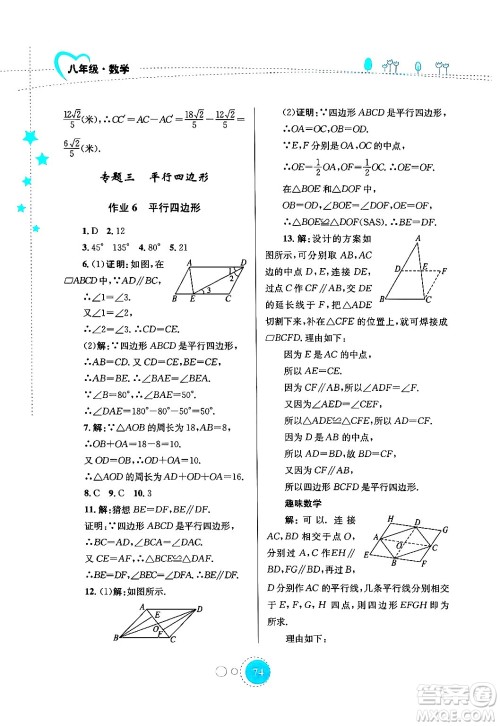 八年级·数学
12√2/5(米),∴CC′=AC′-AC=18√2/5-12√2/5=
6√2/5(米).
专题三 平行四边形
作业6 平行四边形
1. D 2. 12
3. 45° 135° 4. 80° 5. 21
6. (1)证明:如图,在
▱ABCD中,∵AD∥BC,
∴∠1=∠3.
又∠1=∠2,
∴∠2=∠3.
(2)解:∵四边形ABCD是平行四边形,
∴AB∥CD.∴∠BAE=∠E=40°.
∴∠DAE=180°-
7. 解:∵△AOB的周长为18,AB=8,
∴OA+OB=18-8=10.
∴△AOD的周长为AD+OD+OA=16.
8. C 9. C 10. 3
11. 解:猜想BE=DF,BE∥DF.
证明:∵四边形ABCD是平行四边形,
12. (1)解:如图所示.
A D
E
O
F
B C
(2)证明:∵四边形ABCD是平行四边形,
∴OA=OC,OB=OD.
∵E,F分别是OA,OC的中点,
∴OE=1/2OA,OF=1/2OC.
∴OE=OF.
∵在△BOE与△DOF中,
∴△BOE≌△DOF(SAS).
13. 解:设计的方案如
图所示,可分别沿AC,AB
边的中点E,D,过点C作
CF∥AB交
的延长线于F,把△ADE
切割下来,补在△CFE的位置上,就可焊接成
▱BCFD.理由如下:
因为E是AC的中点,
所以AE=CE.
因为CF∥AB,
所以△ADE≌△CFE.
所以AD=CF.
因为D是AB的中点,
所以AD=BD.
所以BD=CF.
又因为CF∥AB,
所以四边形BCFD是平行四边形.
趣味数学
解:可以.连接
AC,BD相交于点O,
分别过A,C作
EH∥BD,
FG∥BD,再过B,
D分别作AC的平行线,几条平行线分别相交
于E,F,G,H四点,则四边形EFGH即为
所求.
理由如下:
74
答案圈